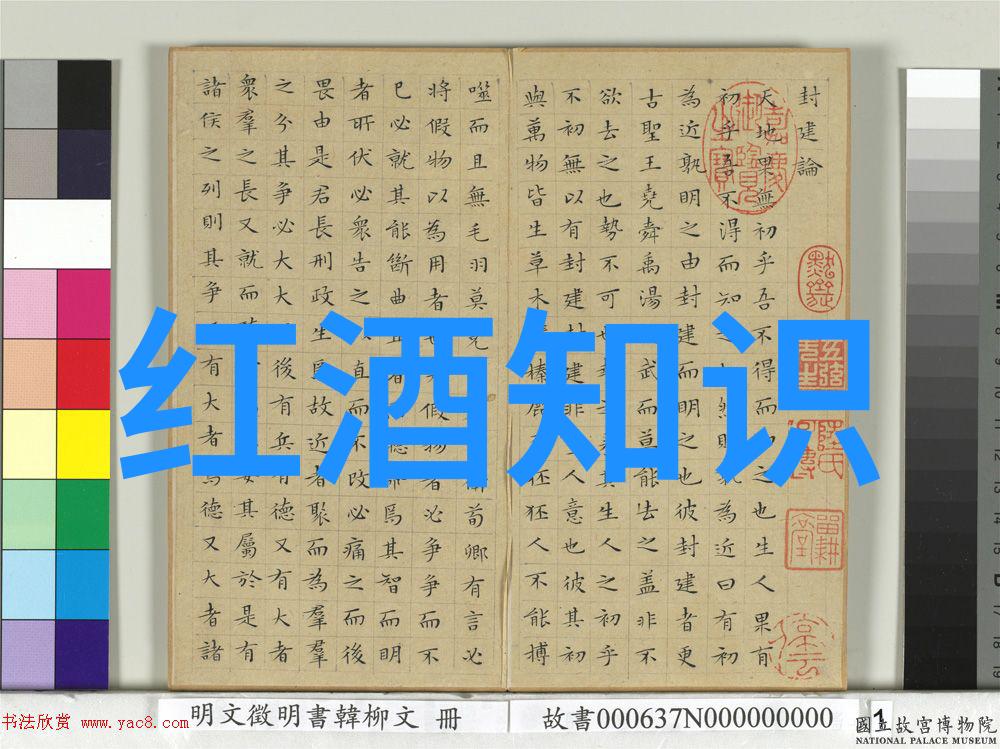 封建論
天地果無初乎吾不得而之也生人果有
初乎吾不得而知之則孰為近曰有初
為近孰明之由封建而明之也彼封建者更
古聖王堯舜禹湯武而莫能去之蓋非不
欲去之也勢不可其生人之初乎
不初無以有封建封建非人意也彼其初
與萬物皆生草木榛狉人不能搏
噬而且無毛羽莫克衛荀卿有言必
將假物以為用者假物者必爭爭而不
已必就其能斷曲直者聽命焉其智而明
者所伏必眾告之直而不改必痛之而後
畏由是君長刑政生焉故近者聚而為羣
之分其爭必大大後有兵有德又有大者
眾羣之長又就而安其屬於是有
諸侯之列則其爭有大者焉德又大者諸
红酒知识
明文徵明書韓柳文 冊
故書000637N000000000
1
書法欣賞 www.yac8.com
國立故宮博物院
NATIONAL PALACE MUSEUM